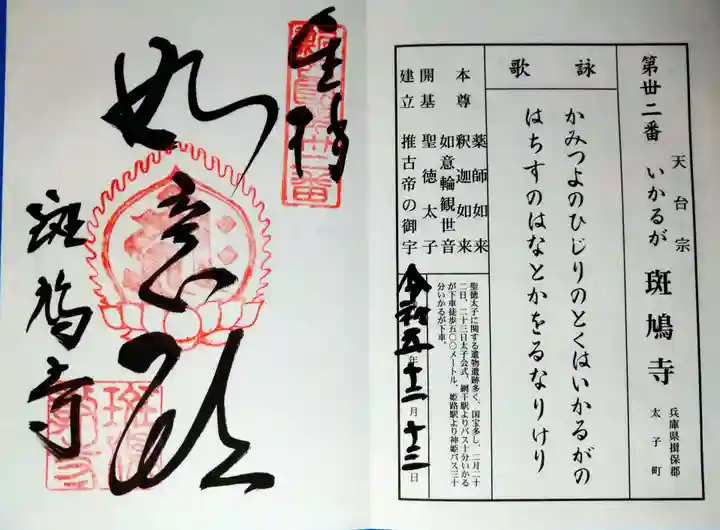 第丗二番 いかるが 斑鳩寺
天台宗
兵庫県揖保郡
太子町
詠歌
かみつよのひじりのとくはいかるがの
はちすのはなとかをるなりけり
本尊 薬師如来
釈迦如来
如意輪観世音
開基 聖徳太子
建立 推古帝の御宇
聖徳太子に関する遺物遺跡多く、国宝多し、二月二十
二日、二十三日太子会式、網干駅よりバス十分いかる
が下車徒歩五〇〇メートル、姫路駅より神姫バス三十
分いかるが下車。
令和五年十二月十三日
奉拝
如意輪
斑鳩寺